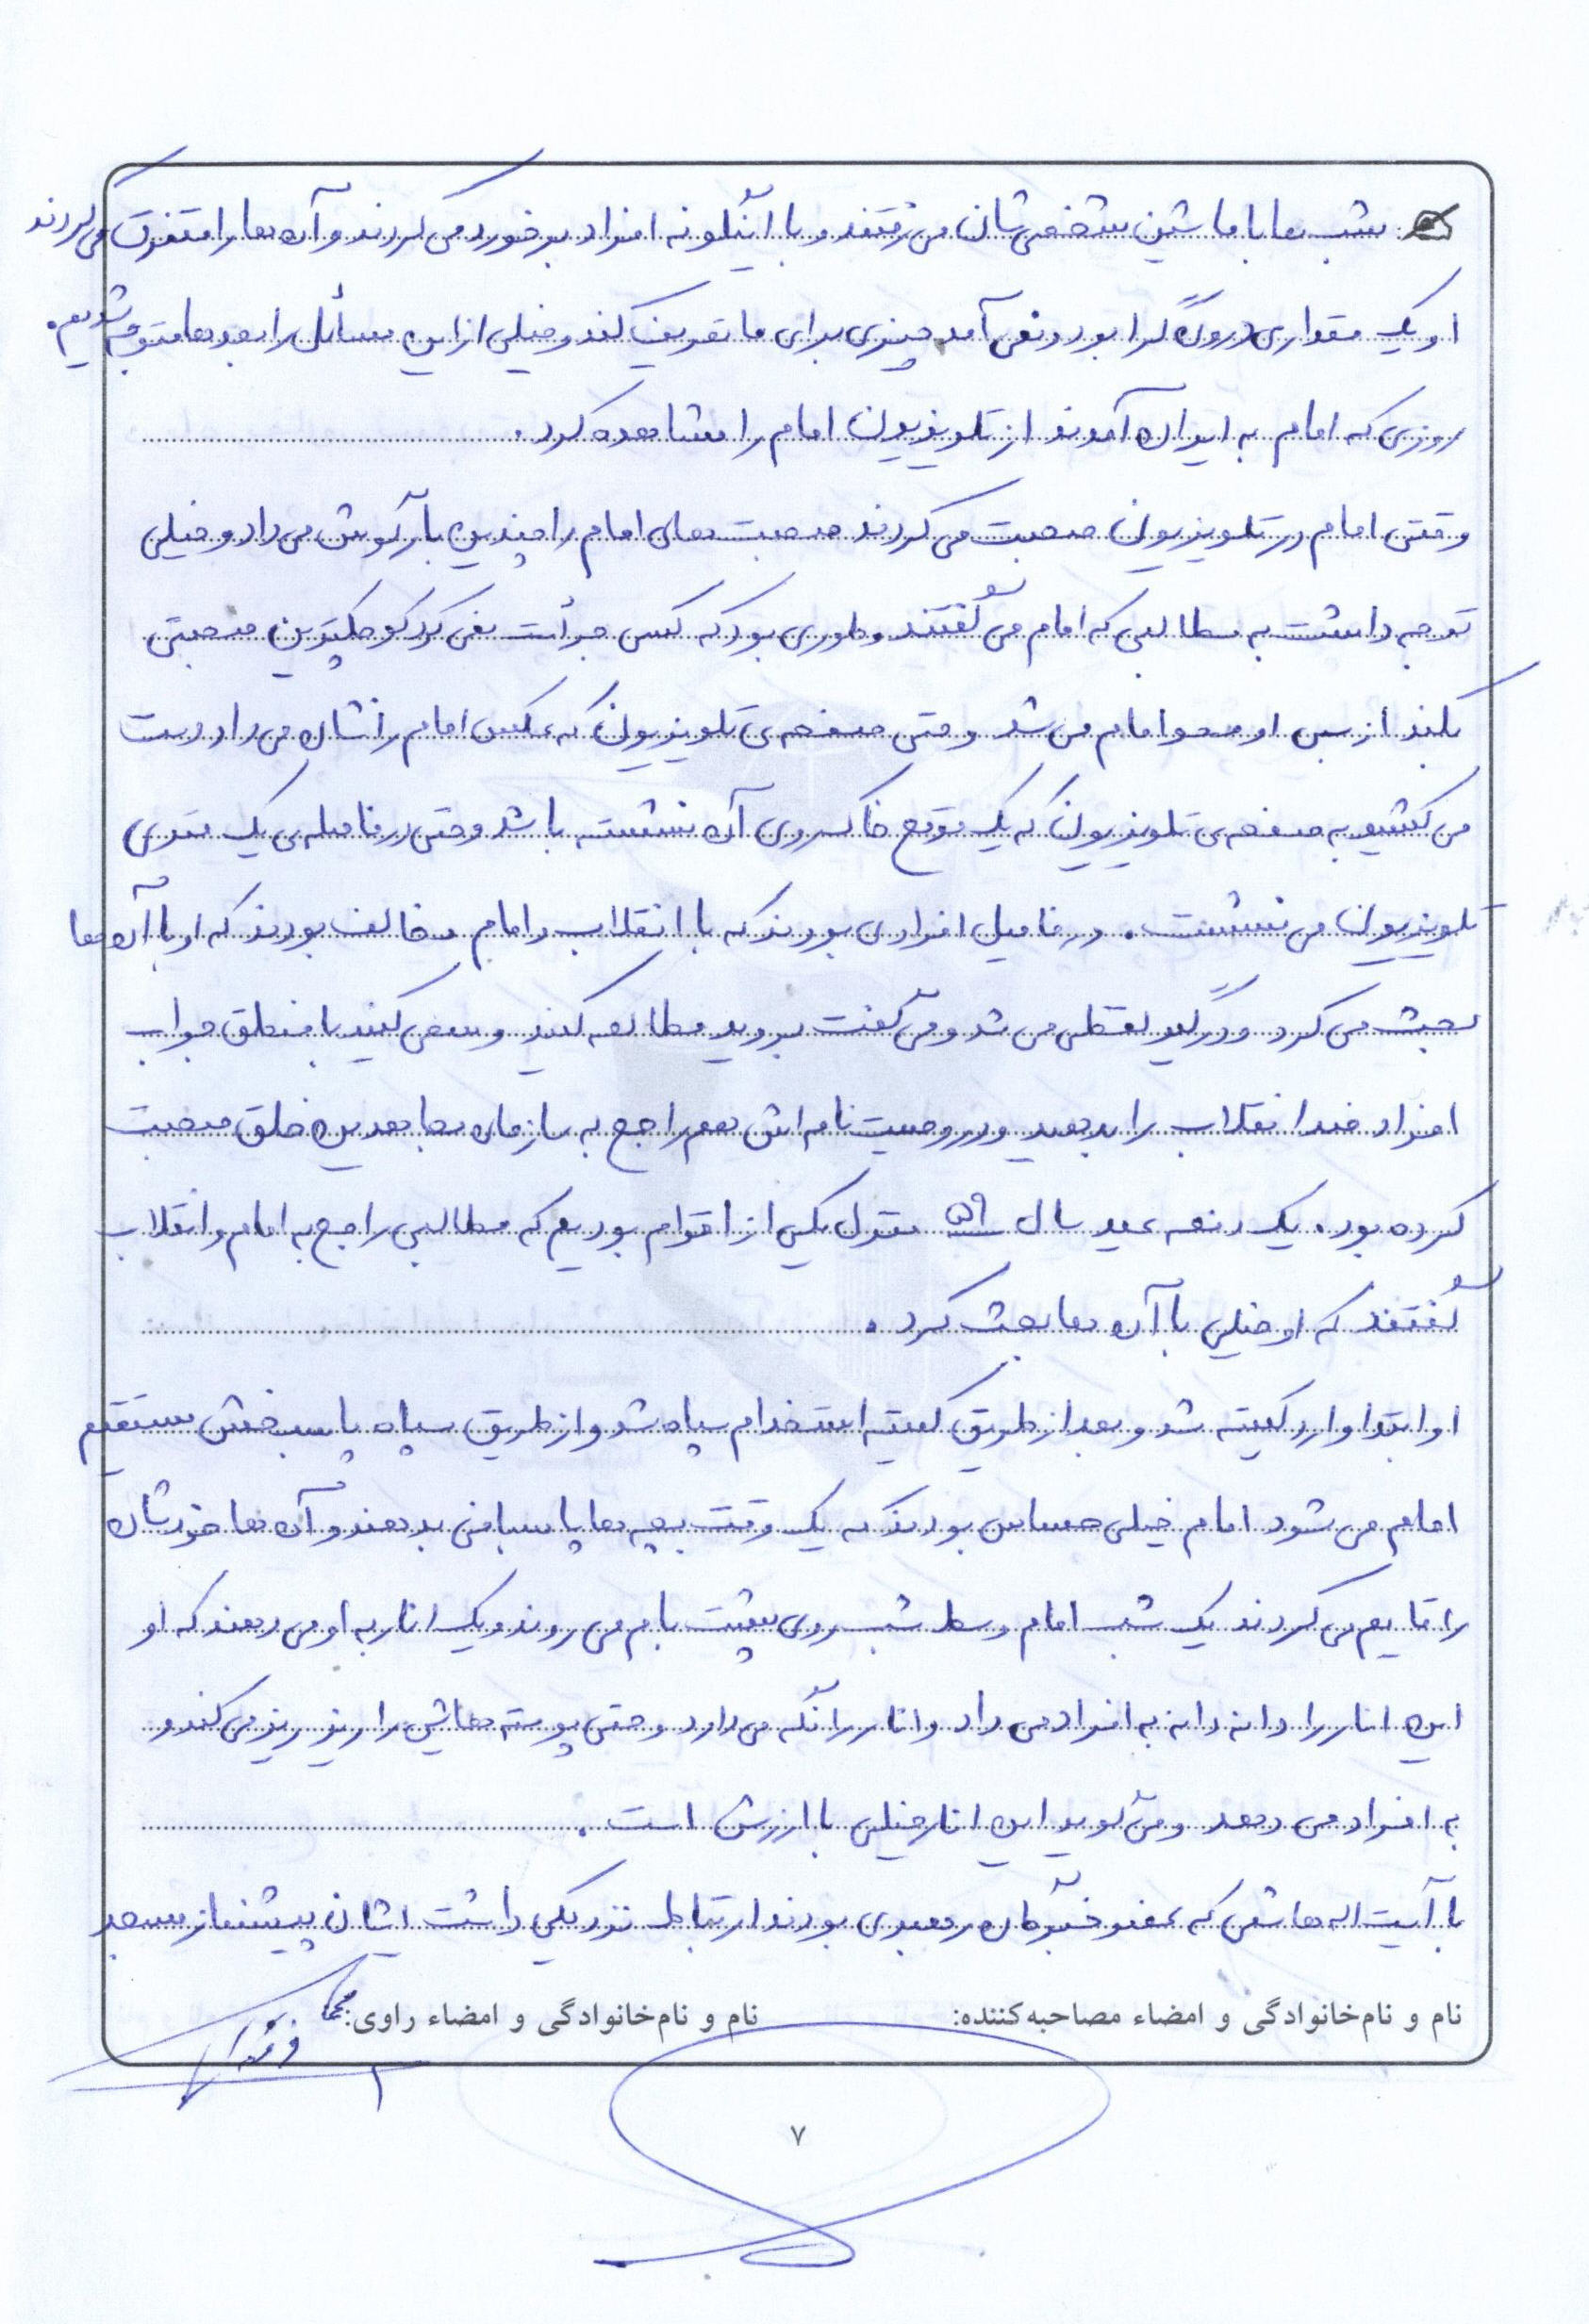 شب ها با ماشین شخصی شان می رفتند و با اینگونه افراد برخورد می کردند و آن ها را متفرق می کردند
او یک مقداری درونگرا بود و نمی آمد چیزی برای ما تعریف کند و خیلی از این مسائل را بعدها متوجه شدیم.
روزی که امام به ایران آمدند از تلویزیون امام را مشاهده کرد.
وقتی امام در تلویزیون صحبت می کردند صحبت های امام را چندین بار گوش می داد و خیلی
توجه داشت به مطالبی که امام می گفتند و طوری بود که کسی جرأت نمی کرد کوچکترین صحبتی
بکند از بس او محو امام می شد وقتی صفحه ی تلویزیون که عکس امام را نشان می داد دست
می کشید به صفحه ی تلویزیون که یک موقع خاک روی آن نشسته باشد و حتی در فاصله ی یک متری
تلویزیون می نشست. در فامیل افرادی بودند که با انقلاب و امام مخالف بودند که او با آن ها
بحث می کرد و درگیر لفظی می شد و می گفت بروید مطالعه کنید و سعی کنید با منطق جواب
افراد ضد انقلاب را بدهید و در وصیت نامه اش هم راجع به سازمان مجاهدین خلق صحبت
کرده بود. یک دفعه عید سال ۵۹ منزل یکی از اقوام بودیم که مطالبی راجع به امام و انقلاب
گفتند که او خیلی با آن ها بحث کرد.
او ابتدا وارد کمیته شد و بعد از طریق کمیته استخدام سپاه شد و از طریق سپاه پاسبخش مستقیم
امام می شود امام خیلی حساس بودند که یک وقت بچه ها پاسبانی بدهند و آن ها خودشان
را قایم می کردند یک شب امام وسط شب روی پشت بام می روند و یک انار به او می دهند که او
این انار را دانه دانه به افراد می داد و انار را نگه می دارد و حتی پوسته هایش را ریز ریز می کند و
به افراد می دهد و می گوید این انار خیلی با ارزش است.
با آیت اله هاشمی که عضو خبرگان رهبری بودند ارتباط نزدیکی داشت ایشان پیشنماز مسجد
نام و نام‌خانوادگی و امضاء مصاحبه‌کننده: نام و نام‌خانوادگی و امضاء راوی:
۷